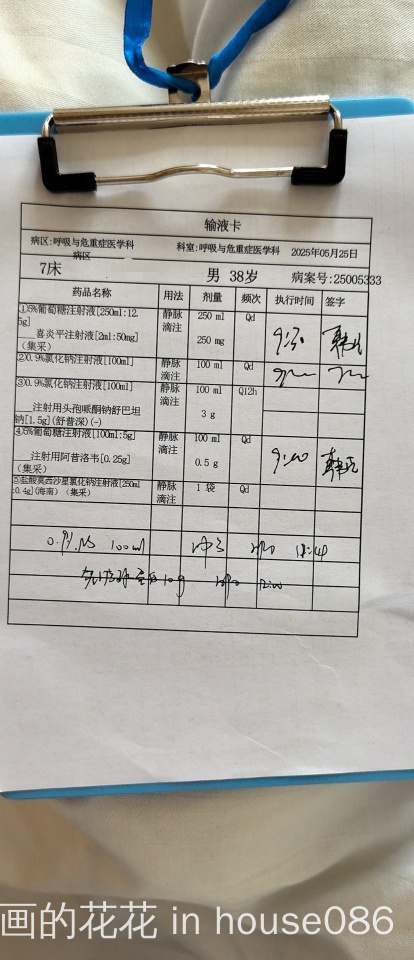 输液卡
病区:呼吸与危重症医学科 科室:呼吸与危重症医学科 2025年05月25日
病区
7床 男 38岁 病案号:25005333
药品名称 用法 剂量 频次 执行时间 签字
①5%葡萄糖注射液[250ml:12.5g] 静脉滴注 250 ml Qd
喜炎平注射液[2ml:50mg](集采) 250 mg 9:30
②0.9%氯化钠注射液[100ml] 静脉滴注 100 ml Qd
③0.9%氯化钠注射液[100ml] 静脉滴注 100 ml Q12h
注射用头孢哌酮钠舒巴坦钠[1.5g](舒普深)(-) 3 g
④5%葡萄糖注射液[100ml:5g] 静脉滴注 100 ml Qd
注射用阿昔洛韦[0.25g](集采) 0.5 g 9:00
⑤盐酸莫西沙星氯化钠注射液[250ml:0.4g](海南)(集采) 静脉滴注 1 袋 Qd
0.9% NS 100ml
10g
画的花花 in house086